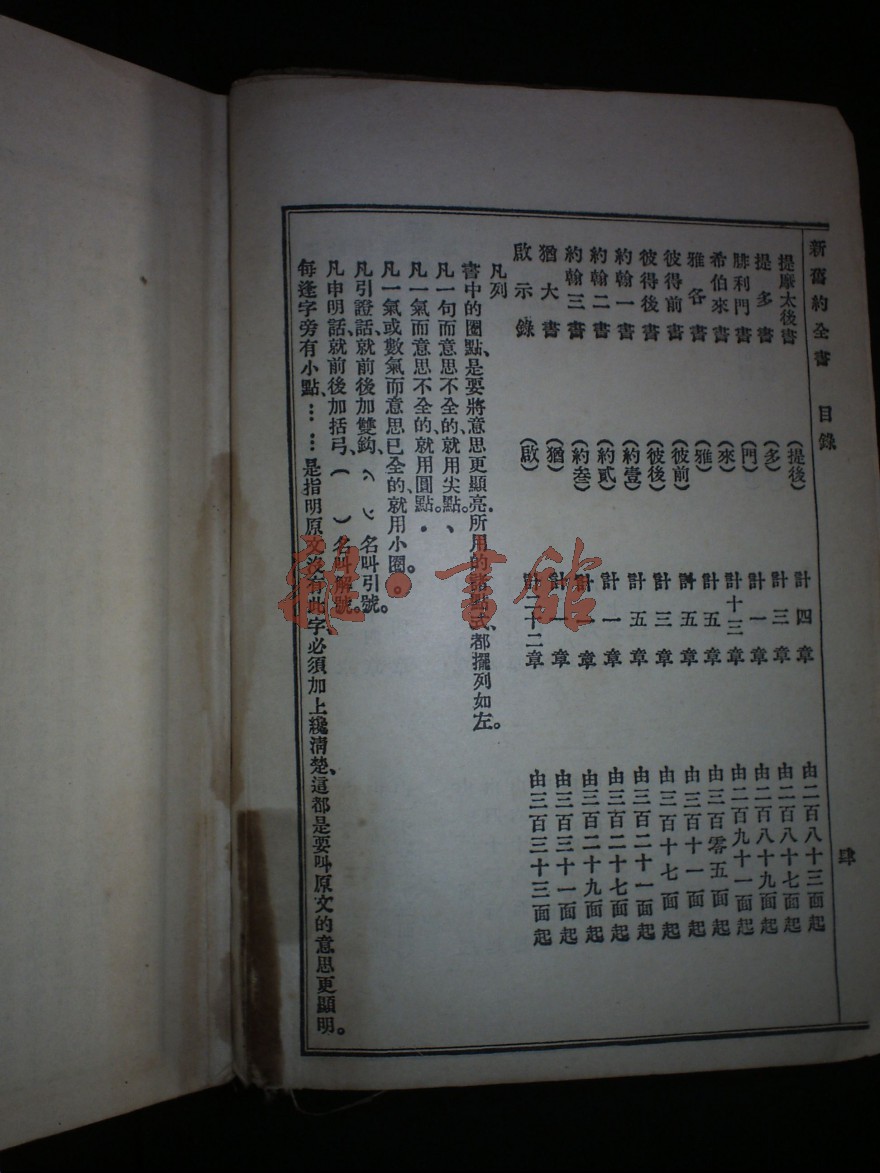 新舊約全書 目錄 肆
提摩太後書 (提後) 計四章 由二百八十三面起
提多書 (多) 計三章 由二百八十七面起
腓利門書 (門) 計一章 由二百八十九面起
希伯來書 (來) 計十三章 由二百九十一面起
雅各書 (雅) 計五章 由三百零五面起
彼得前書 (彼前) 計五章 由三百十一面起
彼得後書 (彼後) 計三章 由三百十七面起
約翰一書 (約壹) 計五章 由三百二十一面起
約翰二書 (約貳) 計一章 由三百二十七面起
約翰三書 (約叁) 計一章 由三百二十九面起
猶大書 (猶) 計一章 由三百三十一面起
啟示錄 (啟) 計二十二章 由三百三十三面起
凡列
書中的圈點、是要將意思更顯亮．所用的諸點式、都擺列如左。
凡一句而意思不全的、就用尖點。、
凡一氣而意思不全的、就用圓點。．
凡一氣或數氣而意思已全的、就用小圈。。
凡引證話、就前後加雙鈎、〈 〉名叫引號。
凡申明話、就前後加括弓、( )名叫解號。
每逢字旁有小點、……是指明原文沒有此字、必須加上纔清楚、這都是要叫原文的意思更顯明。
雜·書館